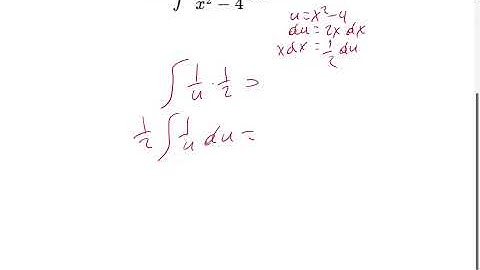 ∫ x² − 4
u = x² − 4
du = 2x dx
x dx = 1/2 du
∫ 1/u · 1/2 =
1/2 ∫ 1/u du =